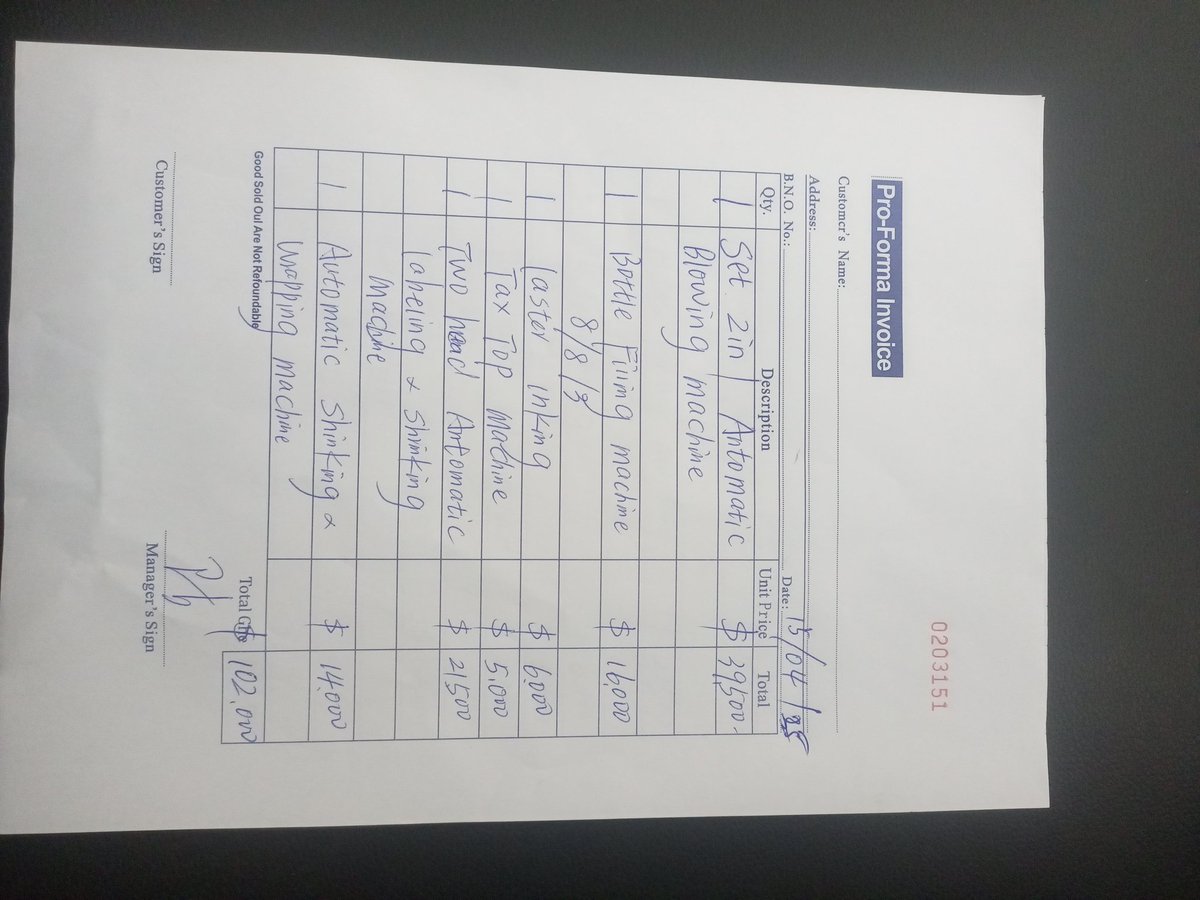 0203151
Pro-Forma Invoice
Customer's Name:
Address:
B.N.O. No.: Date: 15/04/25
Qty. Description Unit Price Total
1 Set 2in 1 Automatic $ 39,500-
Blowing machine
1 Bottle Filing machine $ 16,000
8/8/3
1 laster inking $ 6000
1 Tax Top Machine $ 5,000
1 Two head Automatic $ 21,500
labeling & Shrinking
Machine
1 Automatic Shinking & $ 14,000
Wrapping machine
Total $ 102,000
Good Sold Out Are Not Refoundable
Customer's Sign Manager's Sign